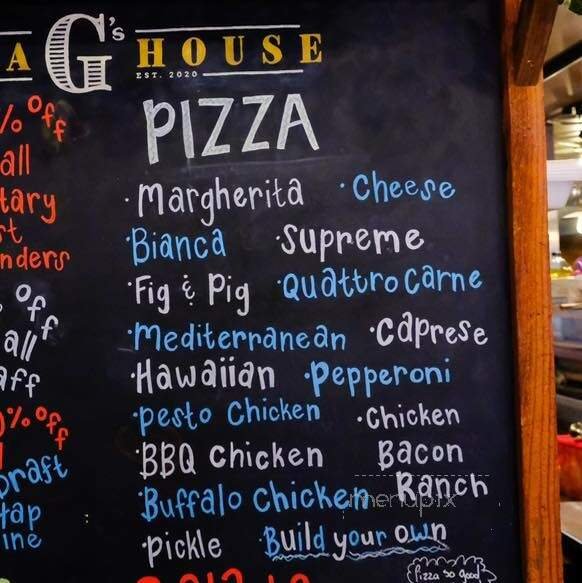 A G's HOUSE
EST. 2020
PIZZA
% off
all
tary
st
nders
% off
all
aff
% off
Draft
tap
ine
·Margherita ·Cheese
·Bianca ·Supreme
·Fig & Pig ·Quattro Carne
·Mediterranean ·Caprese
·Hawaiian ·Pepperoni
·pesto Chicken ·Chicken
·BBQ Chicken Bacon
·Buffalo Chicken Ranch
·pickle ·Build your own
Pizza so good
menupix